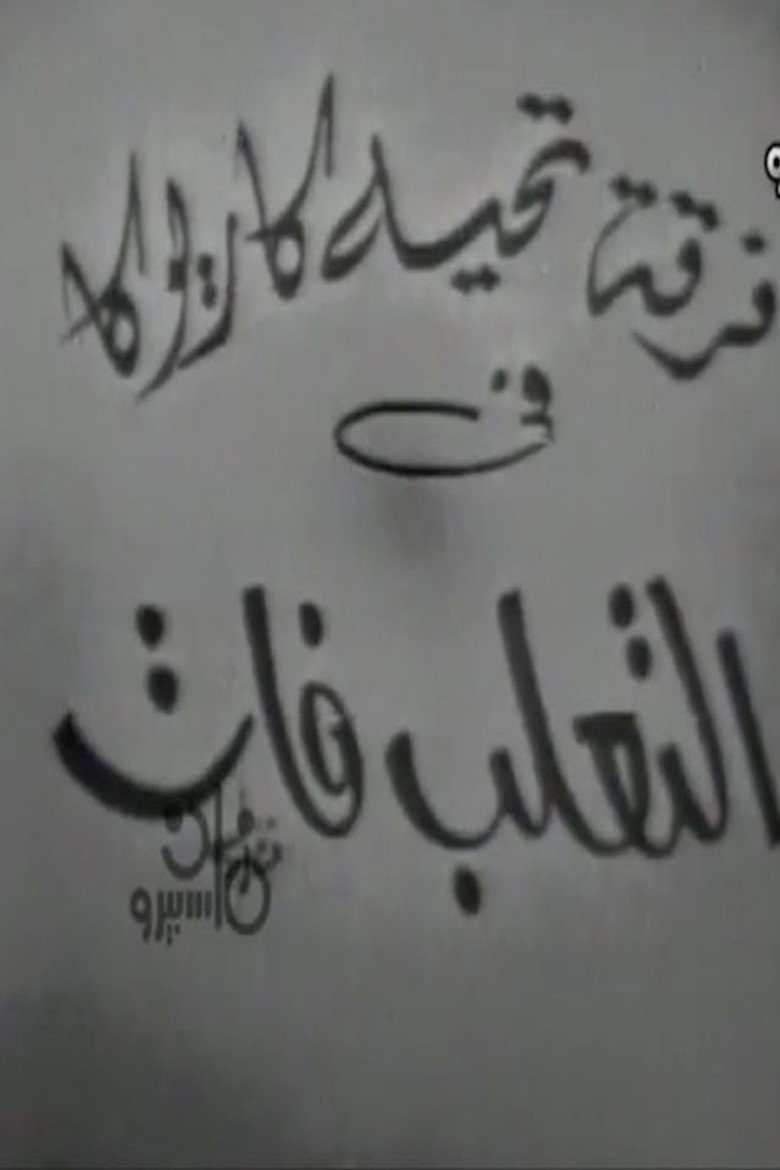 فرقة تحية كاريوكا
فى
التعلب فات